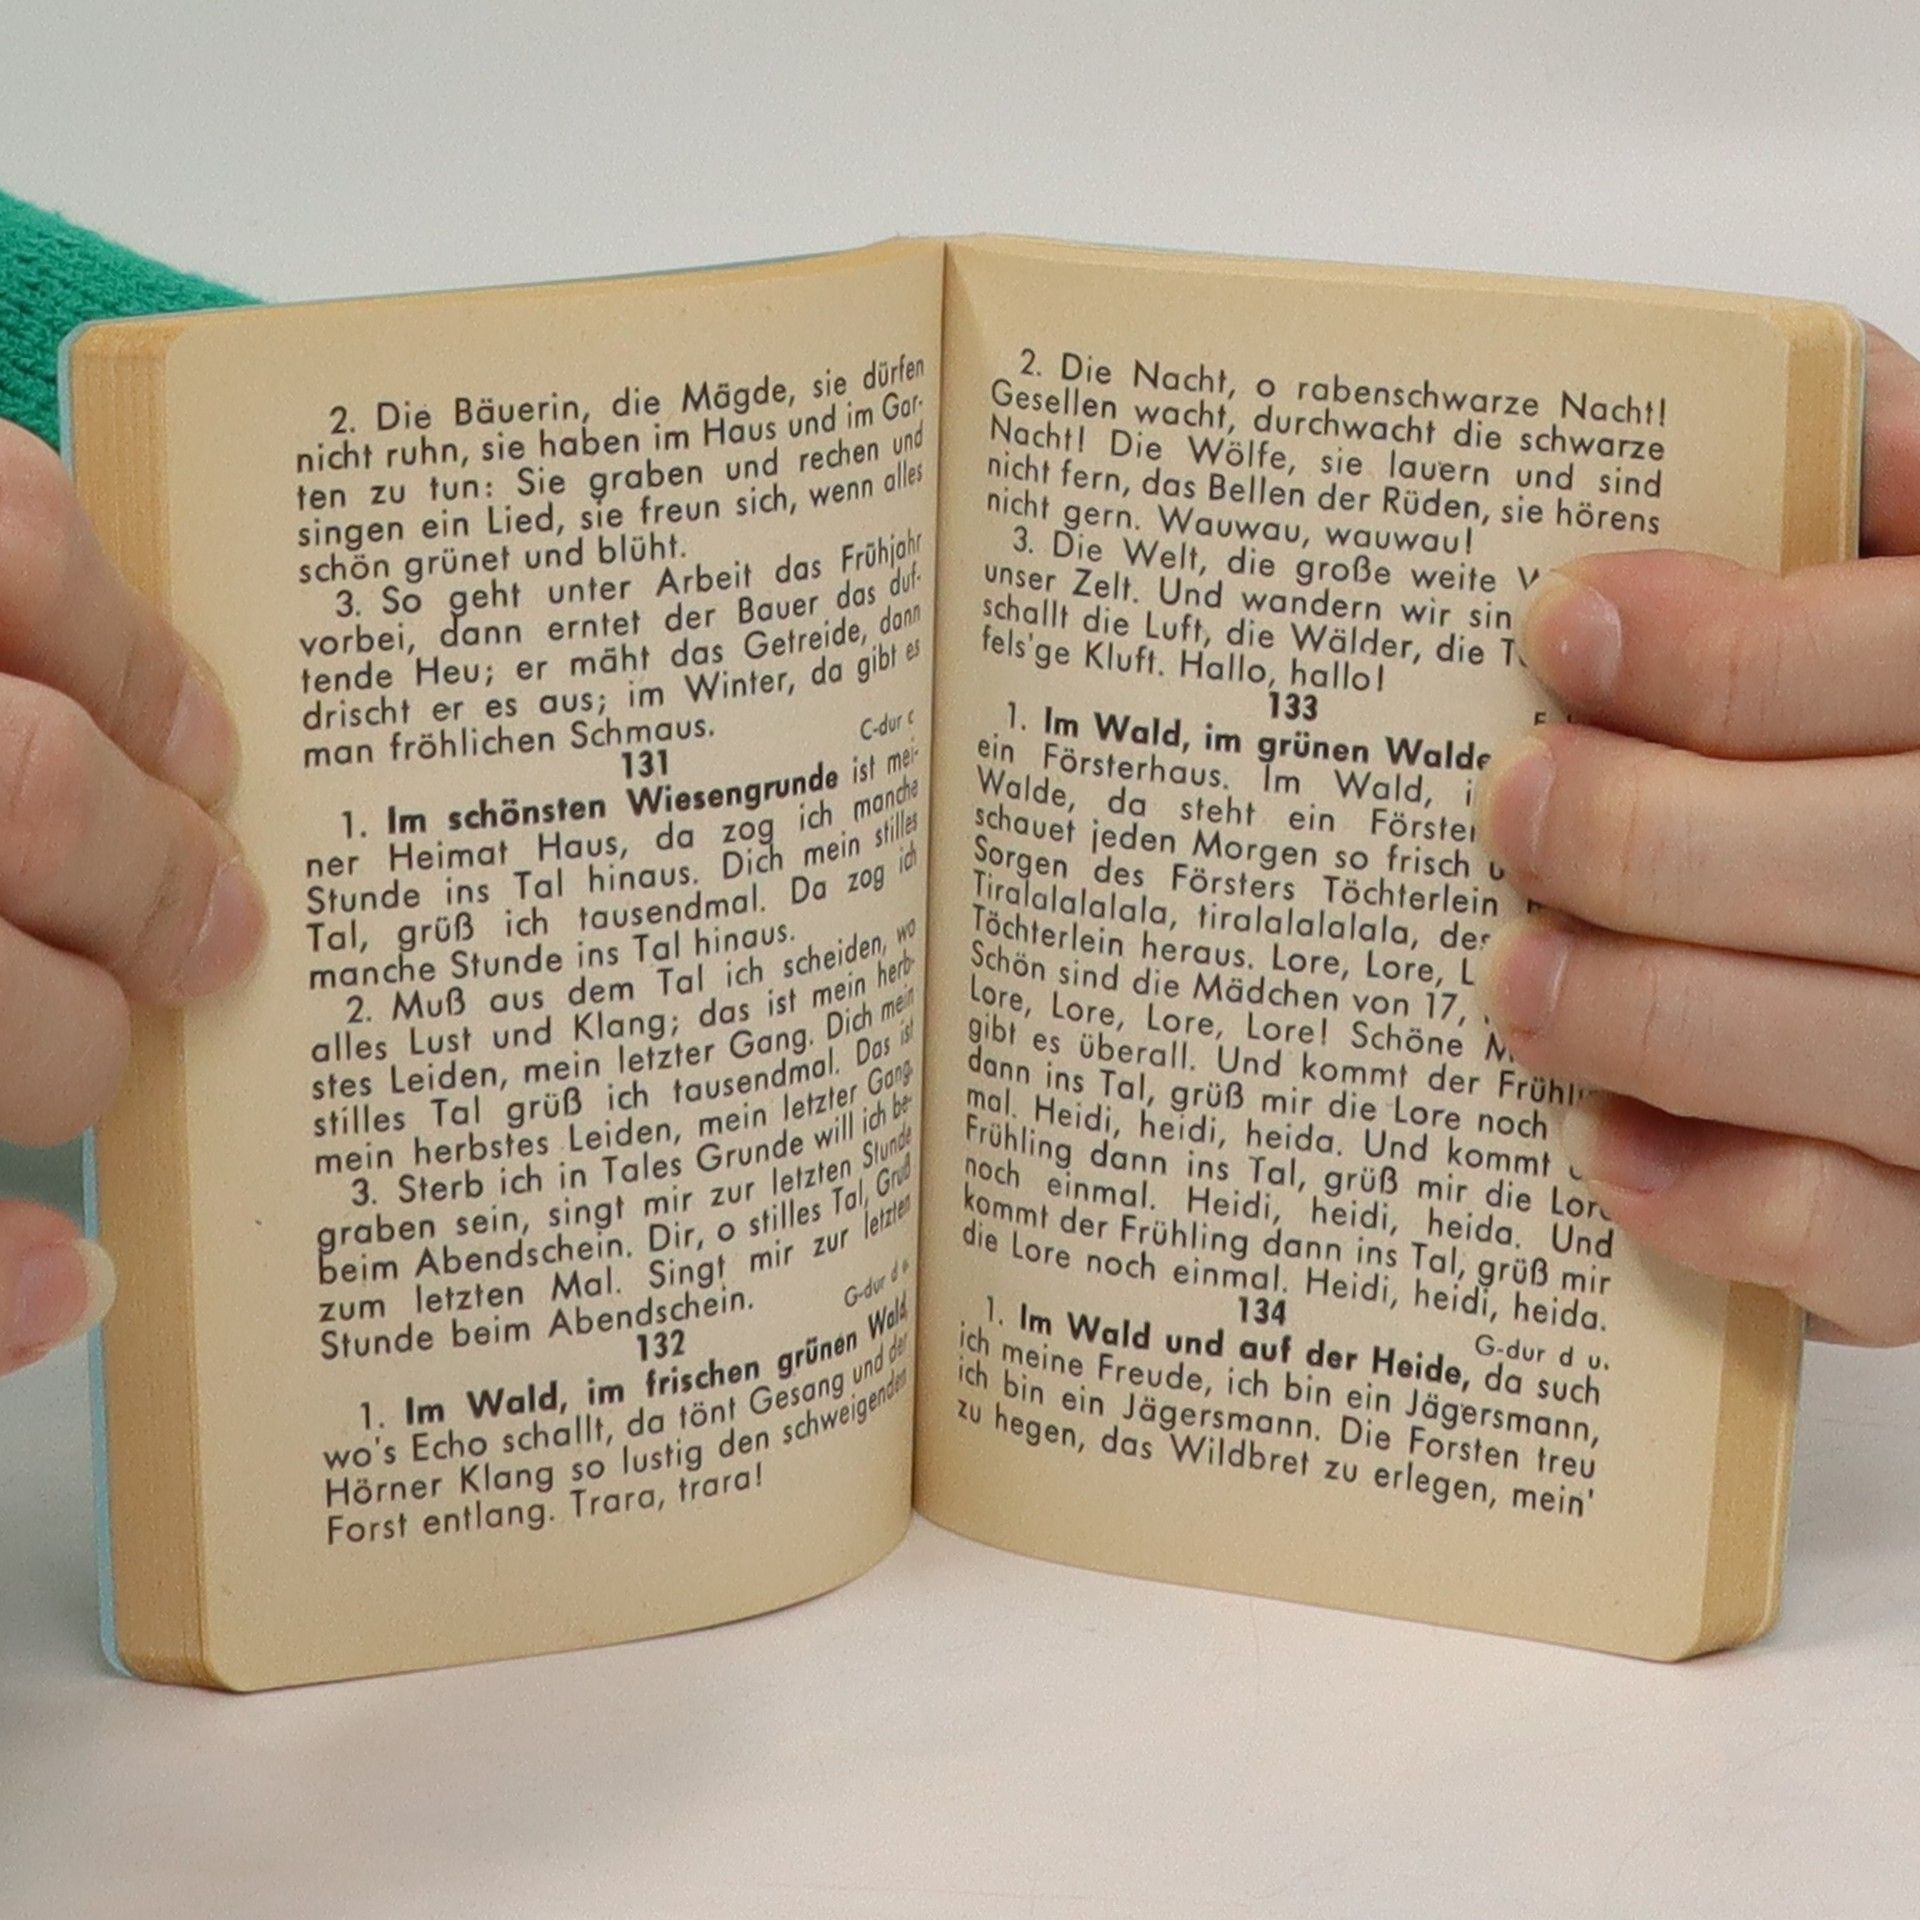 2. Die Bäuerin, die Mägde, sie dürfen
nicht ruhn, sie haben im Haus und im Gar-
ten zu tun: Sie graben und rechen und
singen ein Lied, sie freun sich, wenn alles
schön grünet und blüht.
3. So geht unter Arbeit das Frühjahr
vorbei, dann erntet der Bauer das duf-
tende Heu; er mäht das Getreide, dann
drischt er es aus; im Winter, da gibt es
man fröhlichen Schmaus.
131
C-dur c
1. Im schönsten Wiesengrunde ist mei-
ner Heimat Haus, da zog ich manche
Stunde ins Tal hinaus. Dich mein stilles
Tal, grüß ich tausendmal. Da zog ich
manche Stunde ins Tal hinaus.
2. Muß aus dem Tal ich scheiden, wo
alles Lust und Klang; das ist mein herb-
stes Leiden, mein letzter Gang. Dich mein
stilles Tal grüß ich tausendmal. Das ist
mein herbstes Leiden, mein letzter Gang.
3. Sterb ich in Tales Grunde will ich be-
graben sein, singt mir zur letzten Stunde
beim Abendschein. Dir, o stilles Tal, Gruß
zum letzten Mal. Singt mir zur letzten
Stunde beim Abendschein.
132
G-dur d
1. Im Wald, im frischen grünen Wald,
wo's Echo schallt, da tönt Gesang und der
Hörner Klang so lustig den schweigenden
Forst entlang. Trara, trara!
2. Die Nacht, o rabenschwarze Nacht!
Gesellen wacht, durchwacht die schwarze
Nacht! Die Wölfe, sie lauern und sind
nicht fern, das Bellen der Rüden, sie hörens
nicht gern. Wauwau, wauwau!
3. Die Welt, die große weite
unser Zelt. Und wandern wir
schallt die Luft, die Wälder, die
fels'ge Kluft. Hallo, hallo!
133
1. Im Wald, im grünen Walde
ein Försterhaus. Im Wald,
Walde, da steht ein
schauet jeden Morgen so frisch
Sorgen des Försters Töchterlein
Tiralalalalala, tiralalalalala,
Töchterlein heraus. Lore, Lore,
Schön sind die Mädchen von 17,
Lore, Lore, Lore, Lore! Schöne
gibt es überall. Und kommt der
dann ins Tal, grüß mir die Lore noch
mal. Heidi, heidi, heida. Und kommt
Frühling dann ins Tal, grüß mir die Lore
noch einmal. Heidi, heidi, heida. Und
kommt der Frühling dann ins Tal, grüß mir
die Lore noch einmal. Heidi, heidi, heida.
134
G-dur d u.
1. Im Wald und auf der Heide, da such
ich meine Freude, ich bin ein Jägersmann,
ich bin ein Jägersmann. Die Forsten treu
zu hegen, das Wildbret zu erlegen, mein'